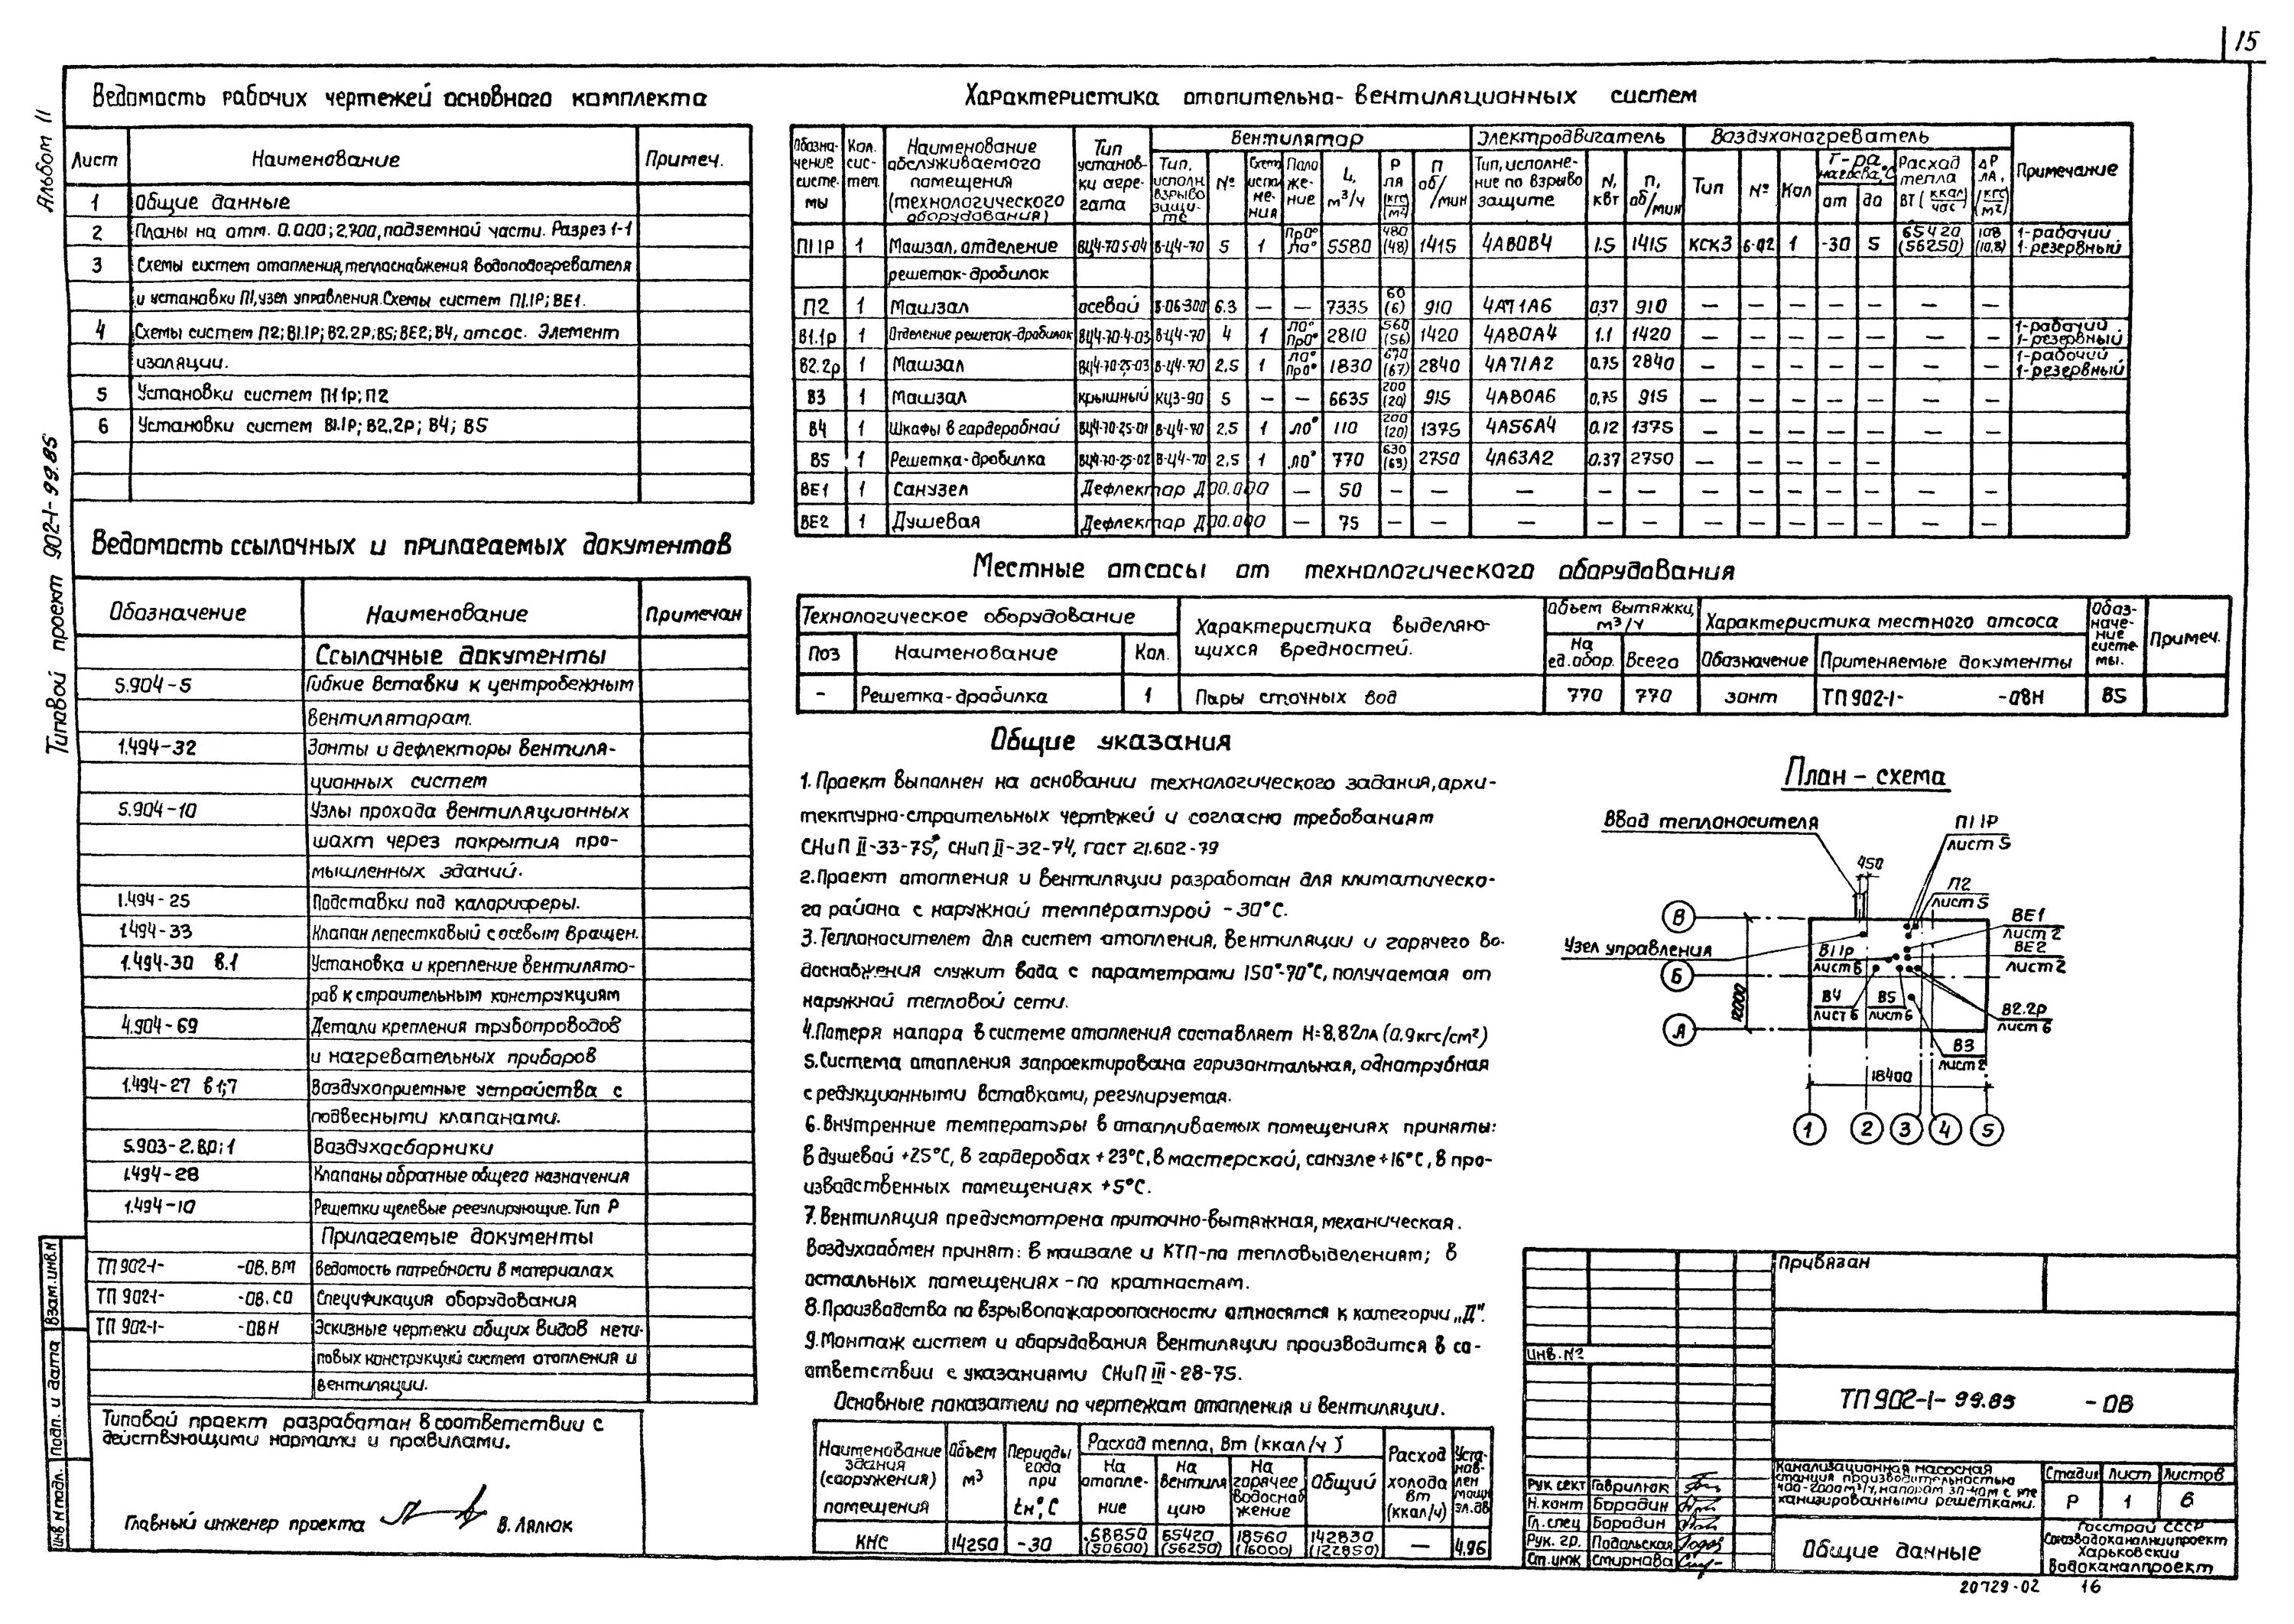 15
Альбом II
Типовой проект 902-1-99.85
Ведомость рабочих чертежей основного комплекта
Лист Наименование Примеч.
1 Общие данные
2 Планы на отм. 0.000; 2.700, подземной части. Разрез 1-1
3 Схемы систем отопления, теплоснабжения водоподогревателя
и установки П1, узел управления. Схемы систем П1.1р; ВЕ1.
4 Схемы систем П2; В1.1р; В2.2р; В5; ВЕ2; В4, отсос. Элемент
изоляции.
5 Установки систем П1 1р; П2
6 Установки систем В1.1р; В2.2р; В4; В5
Ведомость ссылочных и прилагаемых документов
Обозначение Наименование Примечан
Ссылочные документы
5.904-5 Гибкие вставки к центробежным
вентиляторам.
1.494-32 Зонты и дефлекторы вентиля-
ционных систем
5.904-10 Узлы прохода вентиляционных
шахт через покрытия про-
мышленных зданий.
1.494-25 Подставки под калориферы.
1.494-33 Клапан лепестковый с осевым вращен.
1.494-30 В.1 Установка и крепление вентилято-
ров к строительным конструкциям
4.904-69 Детали крепления трубопроводов
и нагревательных приборов
1.494-27 в1;7 Воздухоприемные устройства с
подвесными клапанами.
5.903-2.В0;1 Воздухосборники
1.494-28 Клапаны обратные общего назначения
1.494-10 Решетки щелевые регулирующие. Тип Р
Прилагаемые документы
ТП 902-1- -ОВ.ВМ Ведомость потребности в материалах
ТП 902-1- -ОВ.СО Спецификация оборудования
ТП 902-1- -ОВН Эскизные чертежи общих видов нети-
повых конструкций систем отопления и
вентиляции.
Типовой проект разработан в соответствии с
действующими нормами и правилами.
Главный инженер проекта В. Лялюк
Взам. инв. N
Подп. и дата
Инв N подл.
Характеристика отопительно-вентиляционных систем
Обозна-чение систе-мы Кол. сис-тем. Наименование обслуживаемого помещения (технологического оборудования) Тип установ-ки агре-гата Вентилятор Электродвигатель Воздухонагреватель Примечание
Тип, исполн. взрыво защи-те № Схема испол не-ния Поло же-ние L, м³/ч Р ПА (кгс/м²) П об/мин Тип, исполне-ние по взрыво защите N, кВт п, об/мин Тип № Кол Т-ра нагрева, °С от до Расход тепла Вт (ккал/час) ΔР ПА, (кгс/м²)
П1 1р 1 Машзал, отделение ВЦ4-70 5-04 В-Ц4-70 5 1 Пр0° Л0° 5580 480 (48) 1415 4А80В4 1.5 1415 КСК3 6-02 1 -30 5 65420 (56250) 108 (10,8) 1-рабочий 1-резервный
решеток-дробилок
П2 1 Машзал осевой В-06-300 6.3 — — 7335 60 (6) 910 4А71А6 0,37 910 — — — — — — —
В1.1р 1 Отделение решеток-дробилок ВЦ4-70-4-03 В-Ц4-70 4 1 Л0° Пр0° 2810 560 (56) 1420 4А80А4 1.1 1420 — — — — — — — 1-рабочий 1-резервный
В2.2р 1 Машзал ВЦ4-70-2,5-03 В-Ц4-70 2,5 1 Л0° Пр0° 1830 670 (67) 2840 4А71А2 0.75 2840 — — — — — — — 1-рабочий 1-резервный
В3 1 Машзал крышный КЦ3-90 5 — — 6635 200 (20) 915 4А80А6 0,75 915 — — — — — — —
В4 1 Шкафы в гардеробной ВЦ4-70-2,5-01 В-Ц4-70 2,5 1 Л0° 110 200 (20) 1375 4А56А4 0.12 1375 — — — — — — —
В5 1 Решетка-дробилка ВЦ4-70-2,5-02 В-Ц4-70 2,5 1 Л0° 770 630 (63) 2750 4А63А2 0.37 2750 — — — — — —
ВЕ1 1 Санузел Дефлектор Д00.000 — 50 — — — — — — — — — — — —
ВЕ2 1 Душевая Дефлектор Д00.000 — 75 — — — — — — — — — — — —
Местные отсосы от технологического оборудования
Технологическое оборудование Характеристика выделяю-щихся вредностей. Объем вытяжки, м³/ч Характеристика местного отсоса Обоз-наче-ние систе-мы. Примеч.
Поз Наименование Кол. На ед.обор. Всего Обозначение Применяемые документы
- Решетка-дробилка 1 Пары сточных вод 770 770 зонт ТП 902-1- -ОВН В5
Общие указания
1. Проект выполнен на основании технологического задания, архи-
тектурно-строительных чертежей и согласно требованиям
СНиП II-33-75*, СНиП II-32-74, ГОСТ 21.602-79
2. Проект отопления и вентиляции разработан для климатическо-
го района с наружной температурой -30°С.
3. Теплоносителем для систем отопления, вентиляции и горячего во-
доснабжения служит вода с параметрами 150°-70°С, получаемая от
наружной тепловой сети.
4. Потеря напора в системе отопления составляет Н=8,82ПА (0,9кгс/см²)
5. Система отопления запроектирована горизонтальная, однотрубная
с редукционными вставками, регулируемая.
6. Внутренние температуры в отапливаемых помещениях приняты:
в душевой +25°С, в гардеробах +23°С, в мастерской, санузле +16°С, в про-
изводственных помещениях +5°С.
7. Вентиляция предусмотрена приточно-вытяжная, механическая.
Воздухообмен принят: в машзале и КТП-по тепловыделениям; в
остальных помещениях - по кратностям.
8. Производства по взрывопожароопасности относятся к категории „Д".
9. Монтаж систем и оборудования вентиляции производится в со-
ответствии с указаниями СНиП III-28-75.
Основные показатели по чертежам отопления и вентиляции.
Наименование здания (сооружения) помещения Объем м³ Периоды года при tн, °С Расход тепла, Вт (ккал/ч) Расход холода Вт (ккал/ч) Уста-нов-лен мощн. эл.дв.
На отопле-ние На вентиля цию На горячее водоснаб жение Общий
КНС 14250 -30 58850 (50600) 65420 (56250) 18560 (16000) 142830 (122850) — 4.96
План-схема
Ввод теплоносителя
П1 1р
лист 5
450
П2
лист 5
В
ВЕ1
лист 2
Узел управления
В1 1р
лист 6
ВЕ2
лист 2
Б
12000
В4
лист 6
В5
лист 6
В2.2р
лист 6
А
В3
лист 2
18400
1 2 3 4 5
Привязан
Инв. №
ТП 902-1-99.85 -ОВ
Канализационная насосная
станция производительностью
400-2000м³/ч, напором 30-40м с ме
ханизированными решетками.
Стадия Лист Листов
Р 1 6
Рук сект Гаврилюк
Н.конт Бородин
Гл.спец Бородин
Рук. гр. Подольская
Ст.инж Смирнова
Общие данные
Госстрой СССР
Союзводоканалниипроект
Харьковский
Водоканалпроект
20729-02 16